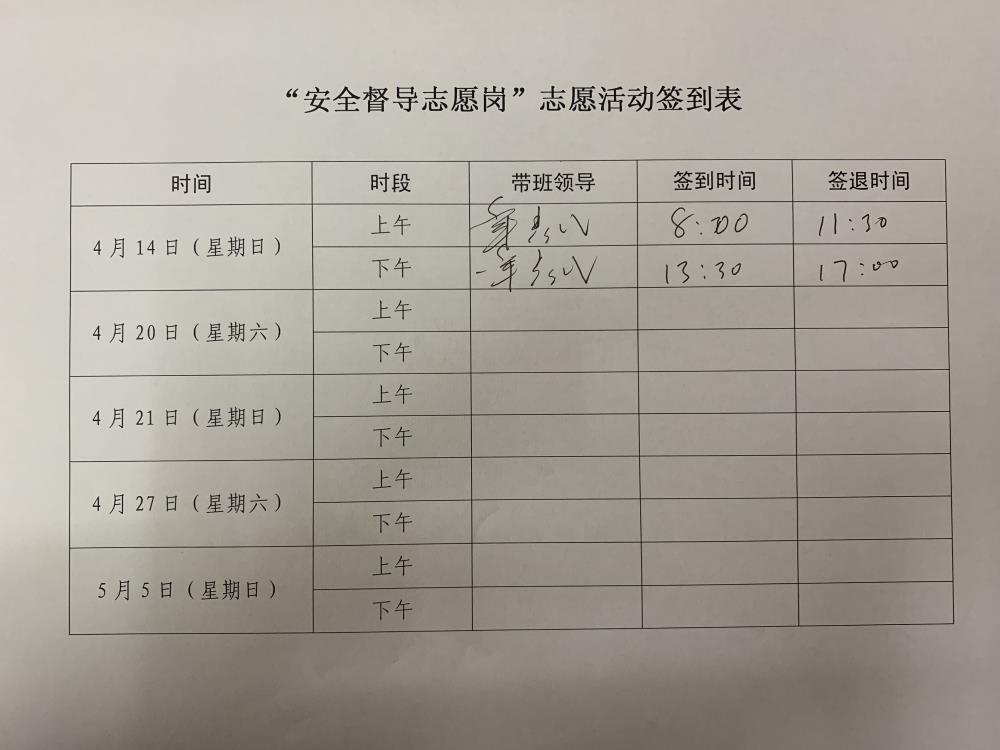 “安全督导志愿岗”志愿活动签到表
时间 时段 带班领导 签到时间 签退时间
4月14日（星期日） 上午 8:00 11:30
下午 13:30 17:00
4月20日（星期六） 上午
下午
4月21日（星期日） 上午
下午
4月27日（星期六） 上午
下午
5月5日（星期日） 上午
下午